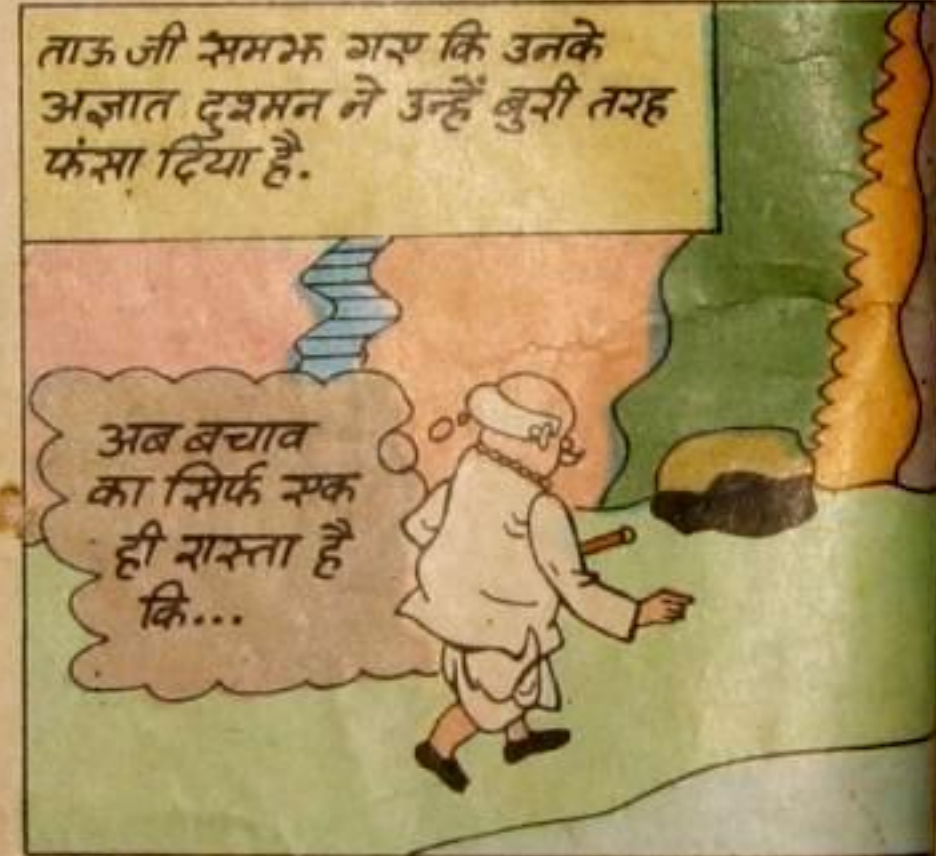 ताऊ जी समझ गए कि उनके
अज्ञात दुश्मन ने उन्हें बुरी तरह
फंसा दिया है.
अब बचाव
का सिर्फ एक
ही रास्ता है
कि...